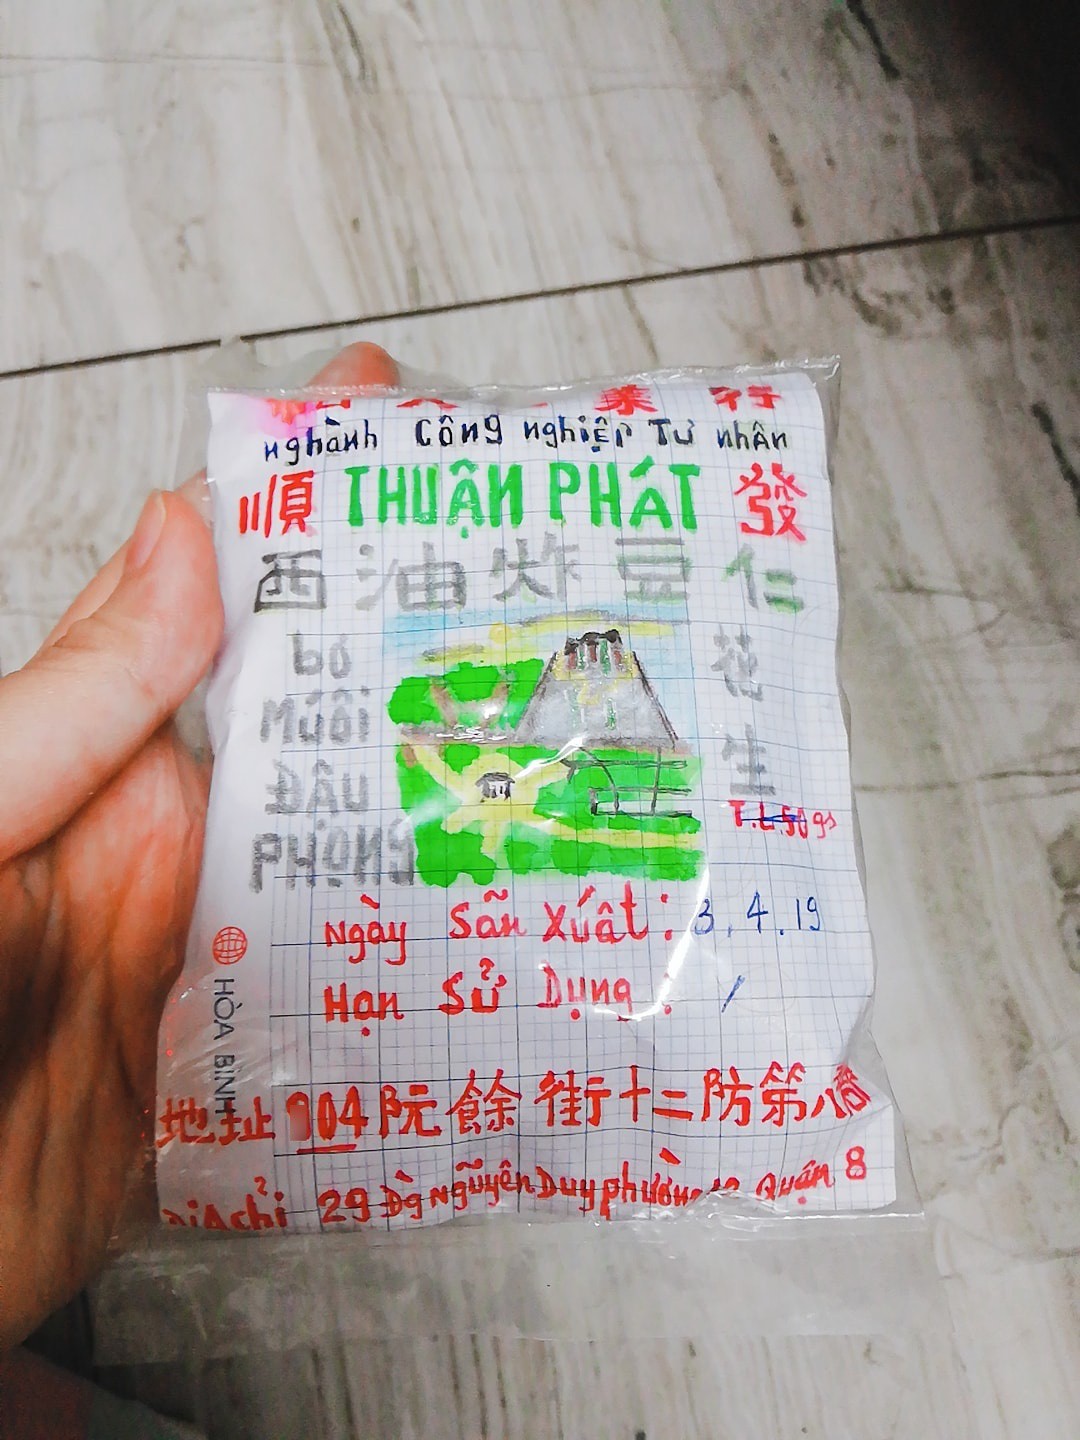 業 行
nghành Công nghiệp Tư nhân
順 THUẬN PHÁT 發
西油炸豆仁
bơ
Muối
ĐẬU
PHỌNG
花
生
T.L.50gs
Ngày Sãn Xúât: 3.4.19
Hạn Sử Dụng: /
HÒA BÌNH
地址 904 阮餘街十二防第八
ĐiAchỉ 29 Đg Nguyên Duy phường 12 Quận 8